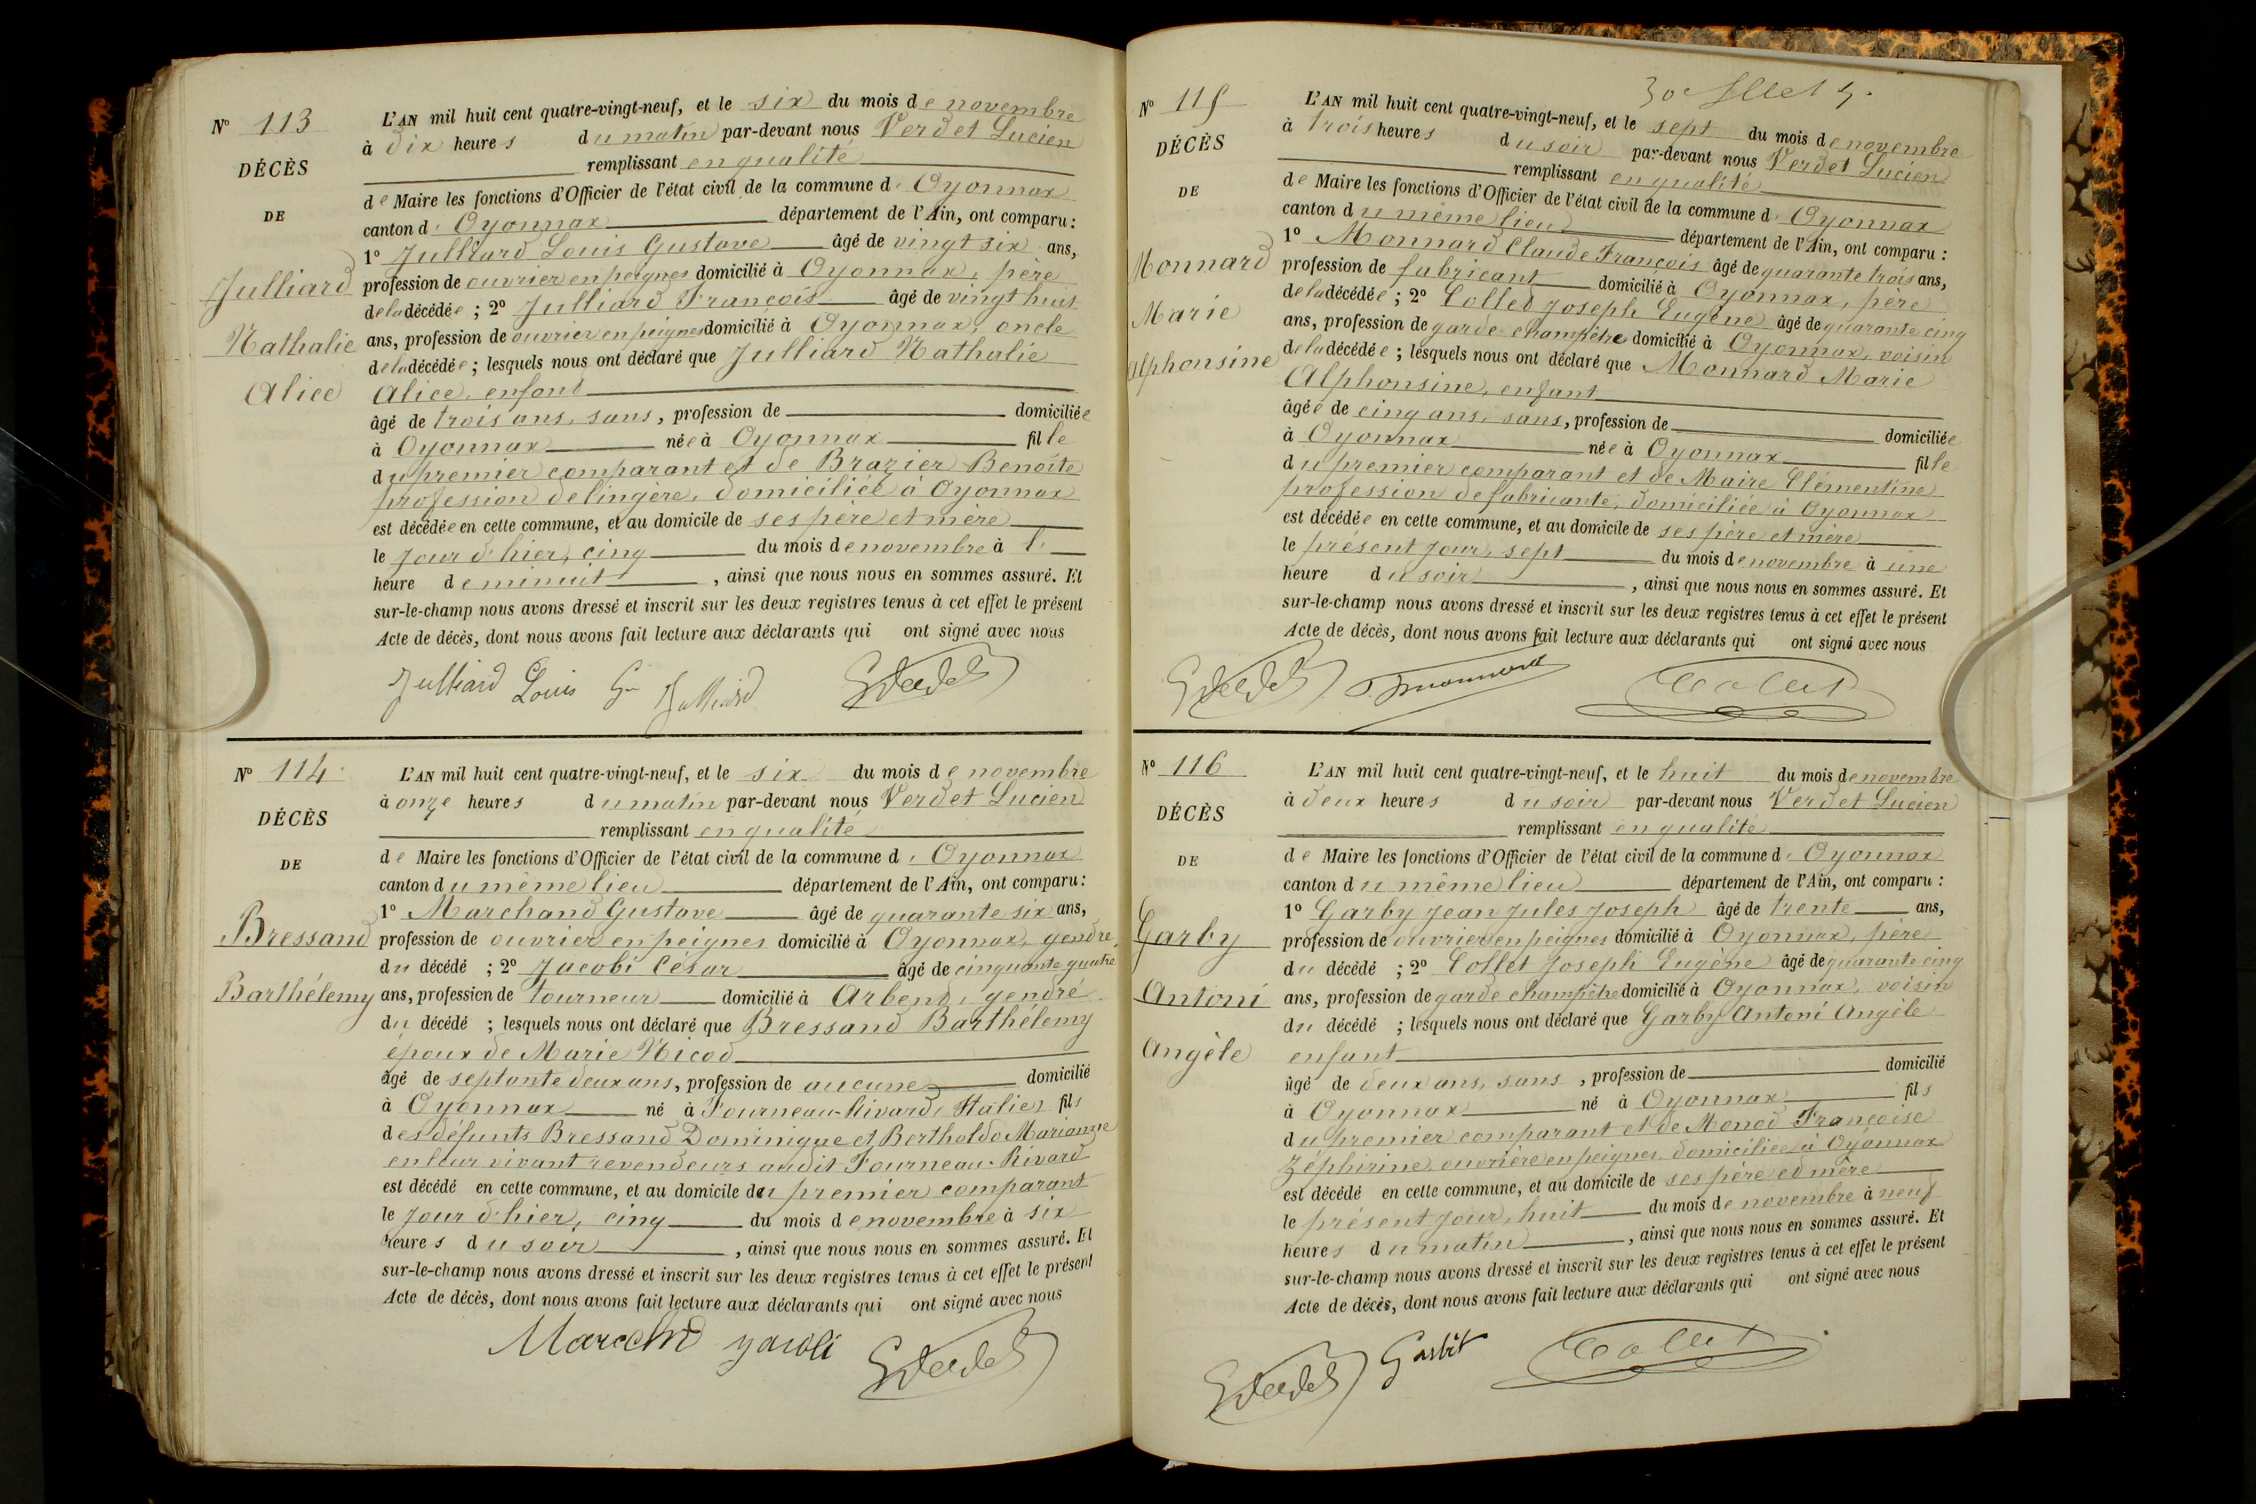 Nº 113
DÉCÈS
DE
Julliard
Nathalie
Alice
L'AN mil huit cent quatre-vingt-neuf, et le six du mois de novembre
à dix heures du matin par-devant nous Verdet Lucien
remplissant en qualité
de Maire les fonctions d'Officier de l'état civil de la commune d' Oyonnax
canton d' Oyonnax département de l'Ain, ont comparu :
1º Julliard Louis Gustave âgé de vingt six ans,
profession de ouvrier en peignes domicilié à Oyonnax, père
de la décédée ; 2º Julliard François âgé de vingt huit
ans, profession de ouvrier en peignes domicilié à Oyonnax, oncle
de la décédée ; lesquels nous ont déclaré que Julliard Nathalie
Alice, enfant
âgé de trois ans, sans, profession de domiciliée
à Oyonnax née à Oyonnax fille
du premier comparant et de Brazier Benoîte
profession de lingère, domiciliée à Oyonnax
est décédée en cette commune, et au domicile de ses père et mère
le jour d'hier, cinq du mois de novembre à l'
heure de minuit , ainsi que nous nous en sommes assuré. Et
sur-le-champ nous avons dressé et inscrit sur les deux registres tenus à cet effet le présent
Acte de décès, dont nous avons fait lecture aux déclarants qui ont signé avec nous
Julliard Louis Gve Julliard
Nº 114
DÉCÈS
DE
Bressand
Barthélemy
L'AN mil huit cent quatre-vingt-neuf, et le six du mois de novembre
à onze heures du matin par-devant nous Verdet Lucien
remplissant en qualité
de Maire les fonctions d'Officier de l'état civil de la commune d' Oyonnax
canton du même lieu département de l'Ain, ont comparu :
1º Marchand Gustave âgé de quarante six ans,
profession de ouvrier en peignes domicilié à Oyonnax, gendre
du décédé ; 2º Jacobi César âgé de cinquante quatre
ans, profession de tourneur domicilié à Arbend, gendre
du décédé ; lesquels nous ont déclaré que Bressand Barthélemy
époux de Marie Nicod
âgé de septante deux ans, profession de aucune domicilié
à Oyonnax né à Fourneau-Rivard, Italie, fils
des défunts Bressand Dominique et Bertholdo Marianne
en leur vivant revendeurs audit Fourneau-Rivard
est décédé en cette commune, et au domicile du premier comparant
le jour d'hier, cinq du mois de novembre à six
heures du soir , ainsi que nous nous en sommes assuré. Et
sur-le-champ nous avons dressé et inscrit sur les deux registres tenus à cet effet le présent
Acte de décès, dont nous avons fait lecture aux déclarants qui ont signé avec nous
Nº 115
DÉCÈS
DE
Monnard
Marie
Alphonsine
L'AN mil huit cent quatre-vingt-neuf, et le sept du mois de novembre
à trois heures du soir par-devant nous Verdet Lucien
remplissant en qualité
de Maire les fonctions d'Officier de l'état civil de la commune d' Oyonnax
canton du même lieu département de l'Ain, ont comparu :
1º Monnard Claude François âgé de quarante trois ans,
profession de fabricant domicilié à Oyonnax, père
de la décédée ; 2º Collet Joseph Eugène âgé de quarante cinq
ans, profession de garde-champêtre domicilié à Oyonnax, voisin
de la décédée ; lesquels nous ont déclaré que Monnard Marie
Alphonsine, enfant
âgée de cinq ans, sans, profession de domiciliée
à Oyonnax née à Oyonnax fille
du premier comparant et de Maire Clémentine
profession de fabricante, domiciliée à Oyonnax
est décédée en cette commune, et au domicile de ses père et mère
le présent jour, sept du mois de novembre à une
heure du soir , ainsi que nous nous en sommes assuré. Et
sur-le-champ nous avons dressé et inscrit sur les deux registres tenus à cet effet le présent
Acte de décès, dont nous avons fait lecture aux déclarants qui ont signé avec nous
Monnard Collet
Nº 116
DÉCÈS
DE
Garby
Antoni
Angèle
L'AN mil huit cent quatre-vingt-neuf, et le huit du mois de novembre
à deux heures du soir par-devant nous Verdet Lucien
remplissant en qualité
de Maire les fonctions d'Officier de l'état civil de la commune d' Oyonnax
canton du même lieu département de l'Ain, ont comparu :
1º Garby Jean Jules Joseph âgé de trente ans,
profession de ouvrier en peignes domicilié à Oyonnax, père
du décédé ; 2º Collet Joseph Eugène âgé de quarante cinq
ans, profession de garde champêtre domicilié à Oyonnax, voisin
du décédé ; lesquels nous ont déclaré que Garby Antoni Angèle
enfant
âgé de deux ans, sans , profession de domicilié
à Oyonnax né à Oyonnax fils
du premier comparant et de Monod Françoise
Zéphirine, ouvrière en peignes, domiciliée à Oyonnax
est décédé en cette commune, et au domicile de ses père et mère
le présent jour, huit du mois de novembre à neuf
heures du matin , ainsi que nous nous en sommes assuré. Et
sur-le-champ nous avons dressé et inscrit sur les deux registres tenus à cet effet le présent
Acte de décès, dont nous avons fait lecture aux déclarants qui ont signé avec nous
Collet